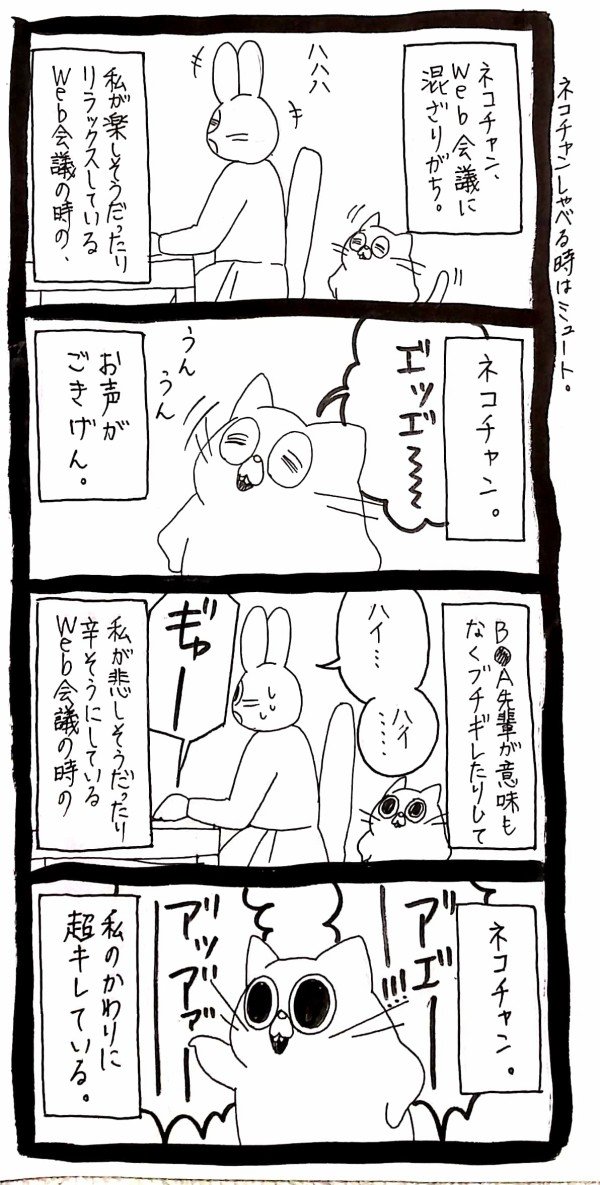 ネコチャンしゃべる時はミュート。
ネコチャン、
Web会議に
混ざりがち。
ハハハ
私が楽しそうだったり
リラックスしている
Web会議の時の、
ネコチャン。
エッエ〜
うんうん
お声が
ごきげん。
B●A先輩が意味も
なくブチギレたりして
ハイ…
ハイ……
ぎゅーー
私が悲しそうだったり
辛そうにしている
Web会議の時の
ネコチャン。
アエーー!!!
アッアァーー
私のかわりに
超キレている。